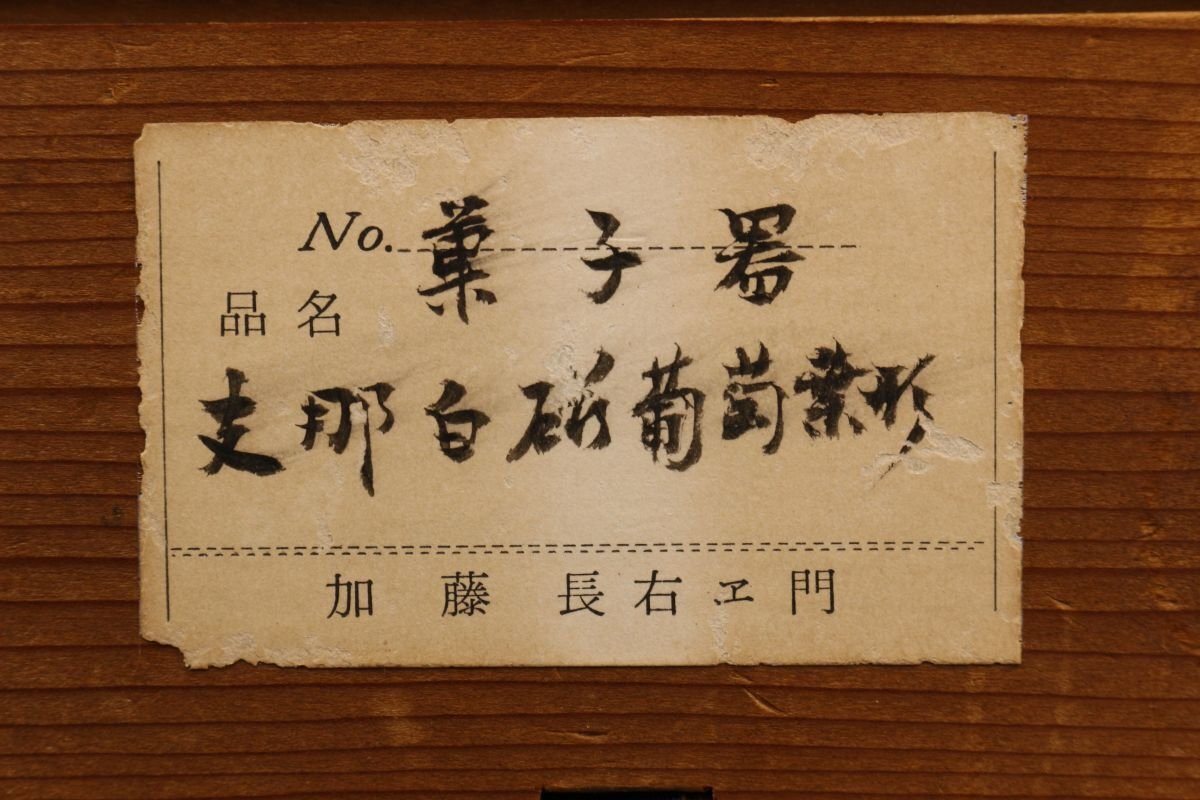 No. 菓子器
品名
支那白砥葡萄葉形
加藤長右ヱ門